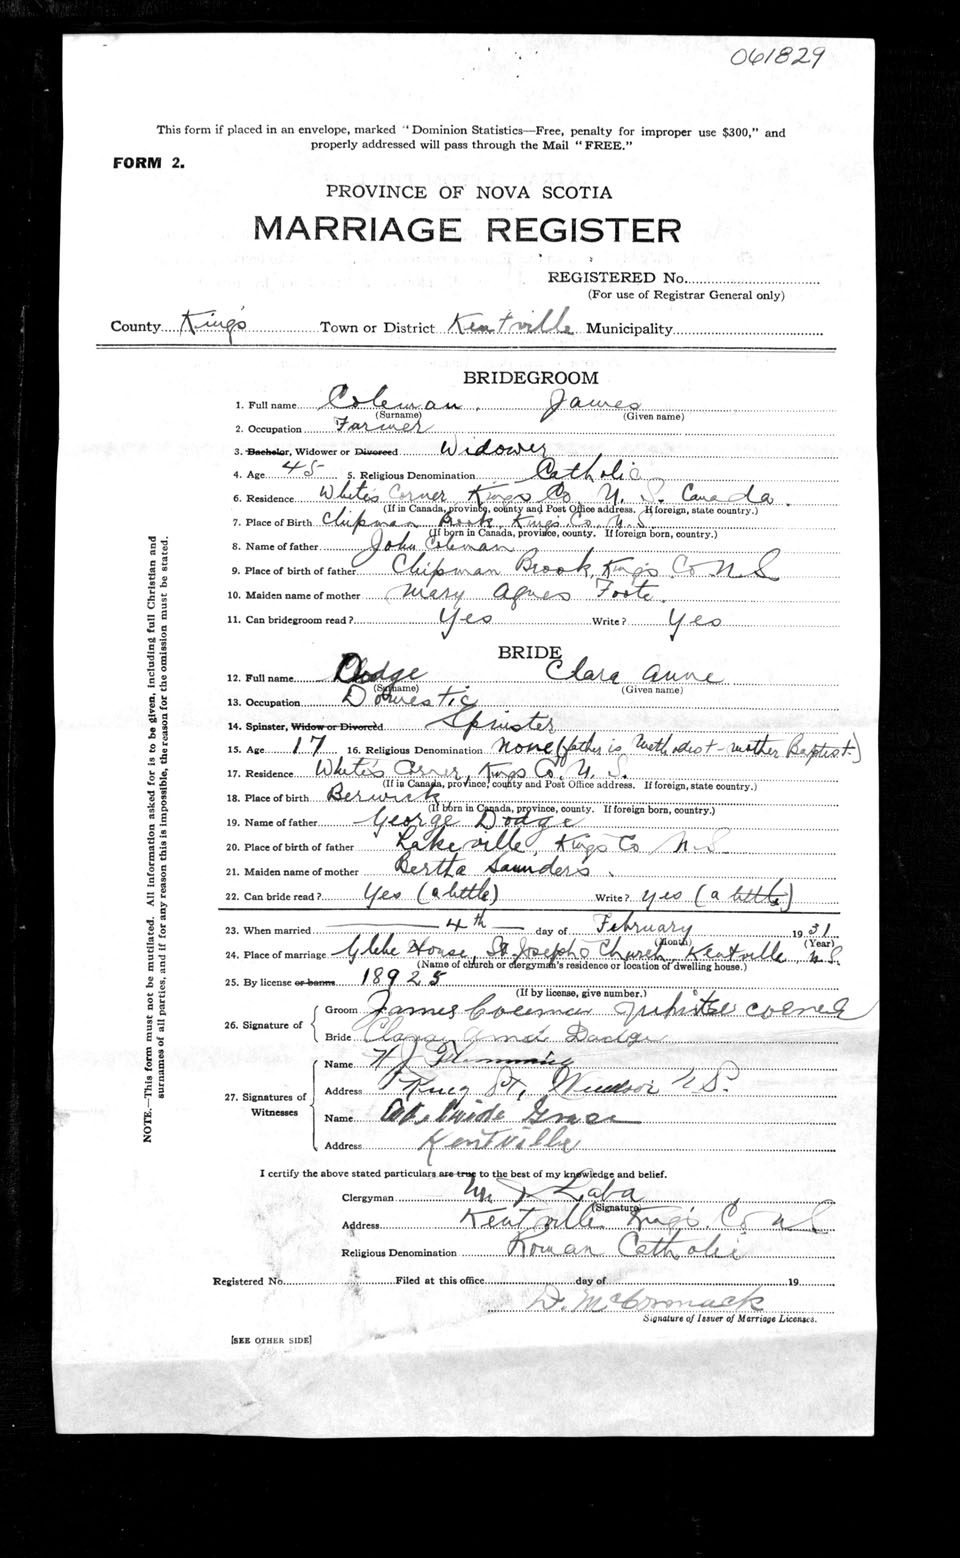 061829
This form if placed in an envelope, marked "Dominion Statistics—Free, penalty for improper use $300," and
properly addressed will pass through the Mail "FREE."
FORM 2.
PROVINCE OF NOVA SCOTIA
MARRIAGE REGISTER
REGISTERED No.
(For use of Registrar General only)
County King's Town or District Kentville Municipality
BRIDEGROOM
1. Full name Coleman, James
(Surname) (Given name)
2. Occupation Farmer
3. Bachelor, Widower or Divorced Widower
4. Age 45 5. Religious Denomination Catholic
6. Residence White's Corner, King's Co, N. S. Canada.
(If in Canada, province, county and Post Office address. If foreign, state country.)
7. Place of Birth Chipman Brook, King's Co. N. S.
(If born in Canada, province, county. If foreign born, country.)
8. Name of father John Coleman
9. Place of birth of father Chipman Brook, King's Co N S
10. Maiden name of mother Mary Agnes Foote.
11. Can bridegroom read? Yes Write? Yes
BRIDE
12. Full name Dodge Clara Anne
(Surname) (Given name)
13. Occupation Domestic
14. Spinster, Widow or Divorced Spinster
15. Age 17 16. Religious Denomination none (father is Methodist - mother Baptist)
17. Residence White's Corner, King's Co, N. S.
(If in Canada, province, county and Post Office address. If foreign, state country.)
18. Place of birth Berwick
(If born in Canada, province, county. If foreign born, country.)
19. Name of father George Dodge
20. Place of birth of father Lakeville, King's Co N. S.
21. Maiden name of mother Bertha Saunders.
22. Can bride read? Yes (a little) Write? yes (a little)
23. When married 4th day of February 1931
(Month) (Year)
24. Place of marriage Glebe House, St Joseph's Church, Kentville, N.S.
(Name of church or clergyman's residence or location of dwelling house.)
25. By license or banns 18925
(If by license, give number.)
26. Signature of
Groom James Coleman White corner
Bride Clara Dodge
27. Signatures of Witnesses
Name H J
Address King St, Windsor N S.
Name
Address Kentville
I certify the above stated particulars are true to the best of my knowledge and belief.
Clergyman
(Signature)
Address Kentville King's Co N S
Religious Denomination Roman Catholic
Registered No. Filed at this office day of 19
D. McCormack
Signature of Issuer of Marriage Licenses.
[SEE OTHER SIDE]
NOTE.—This form must not be mutilated. All information asked for is to be given, including full Christian and
surnames of all parties, and if for any reason this is impossible, the reason for the omission must be stated.